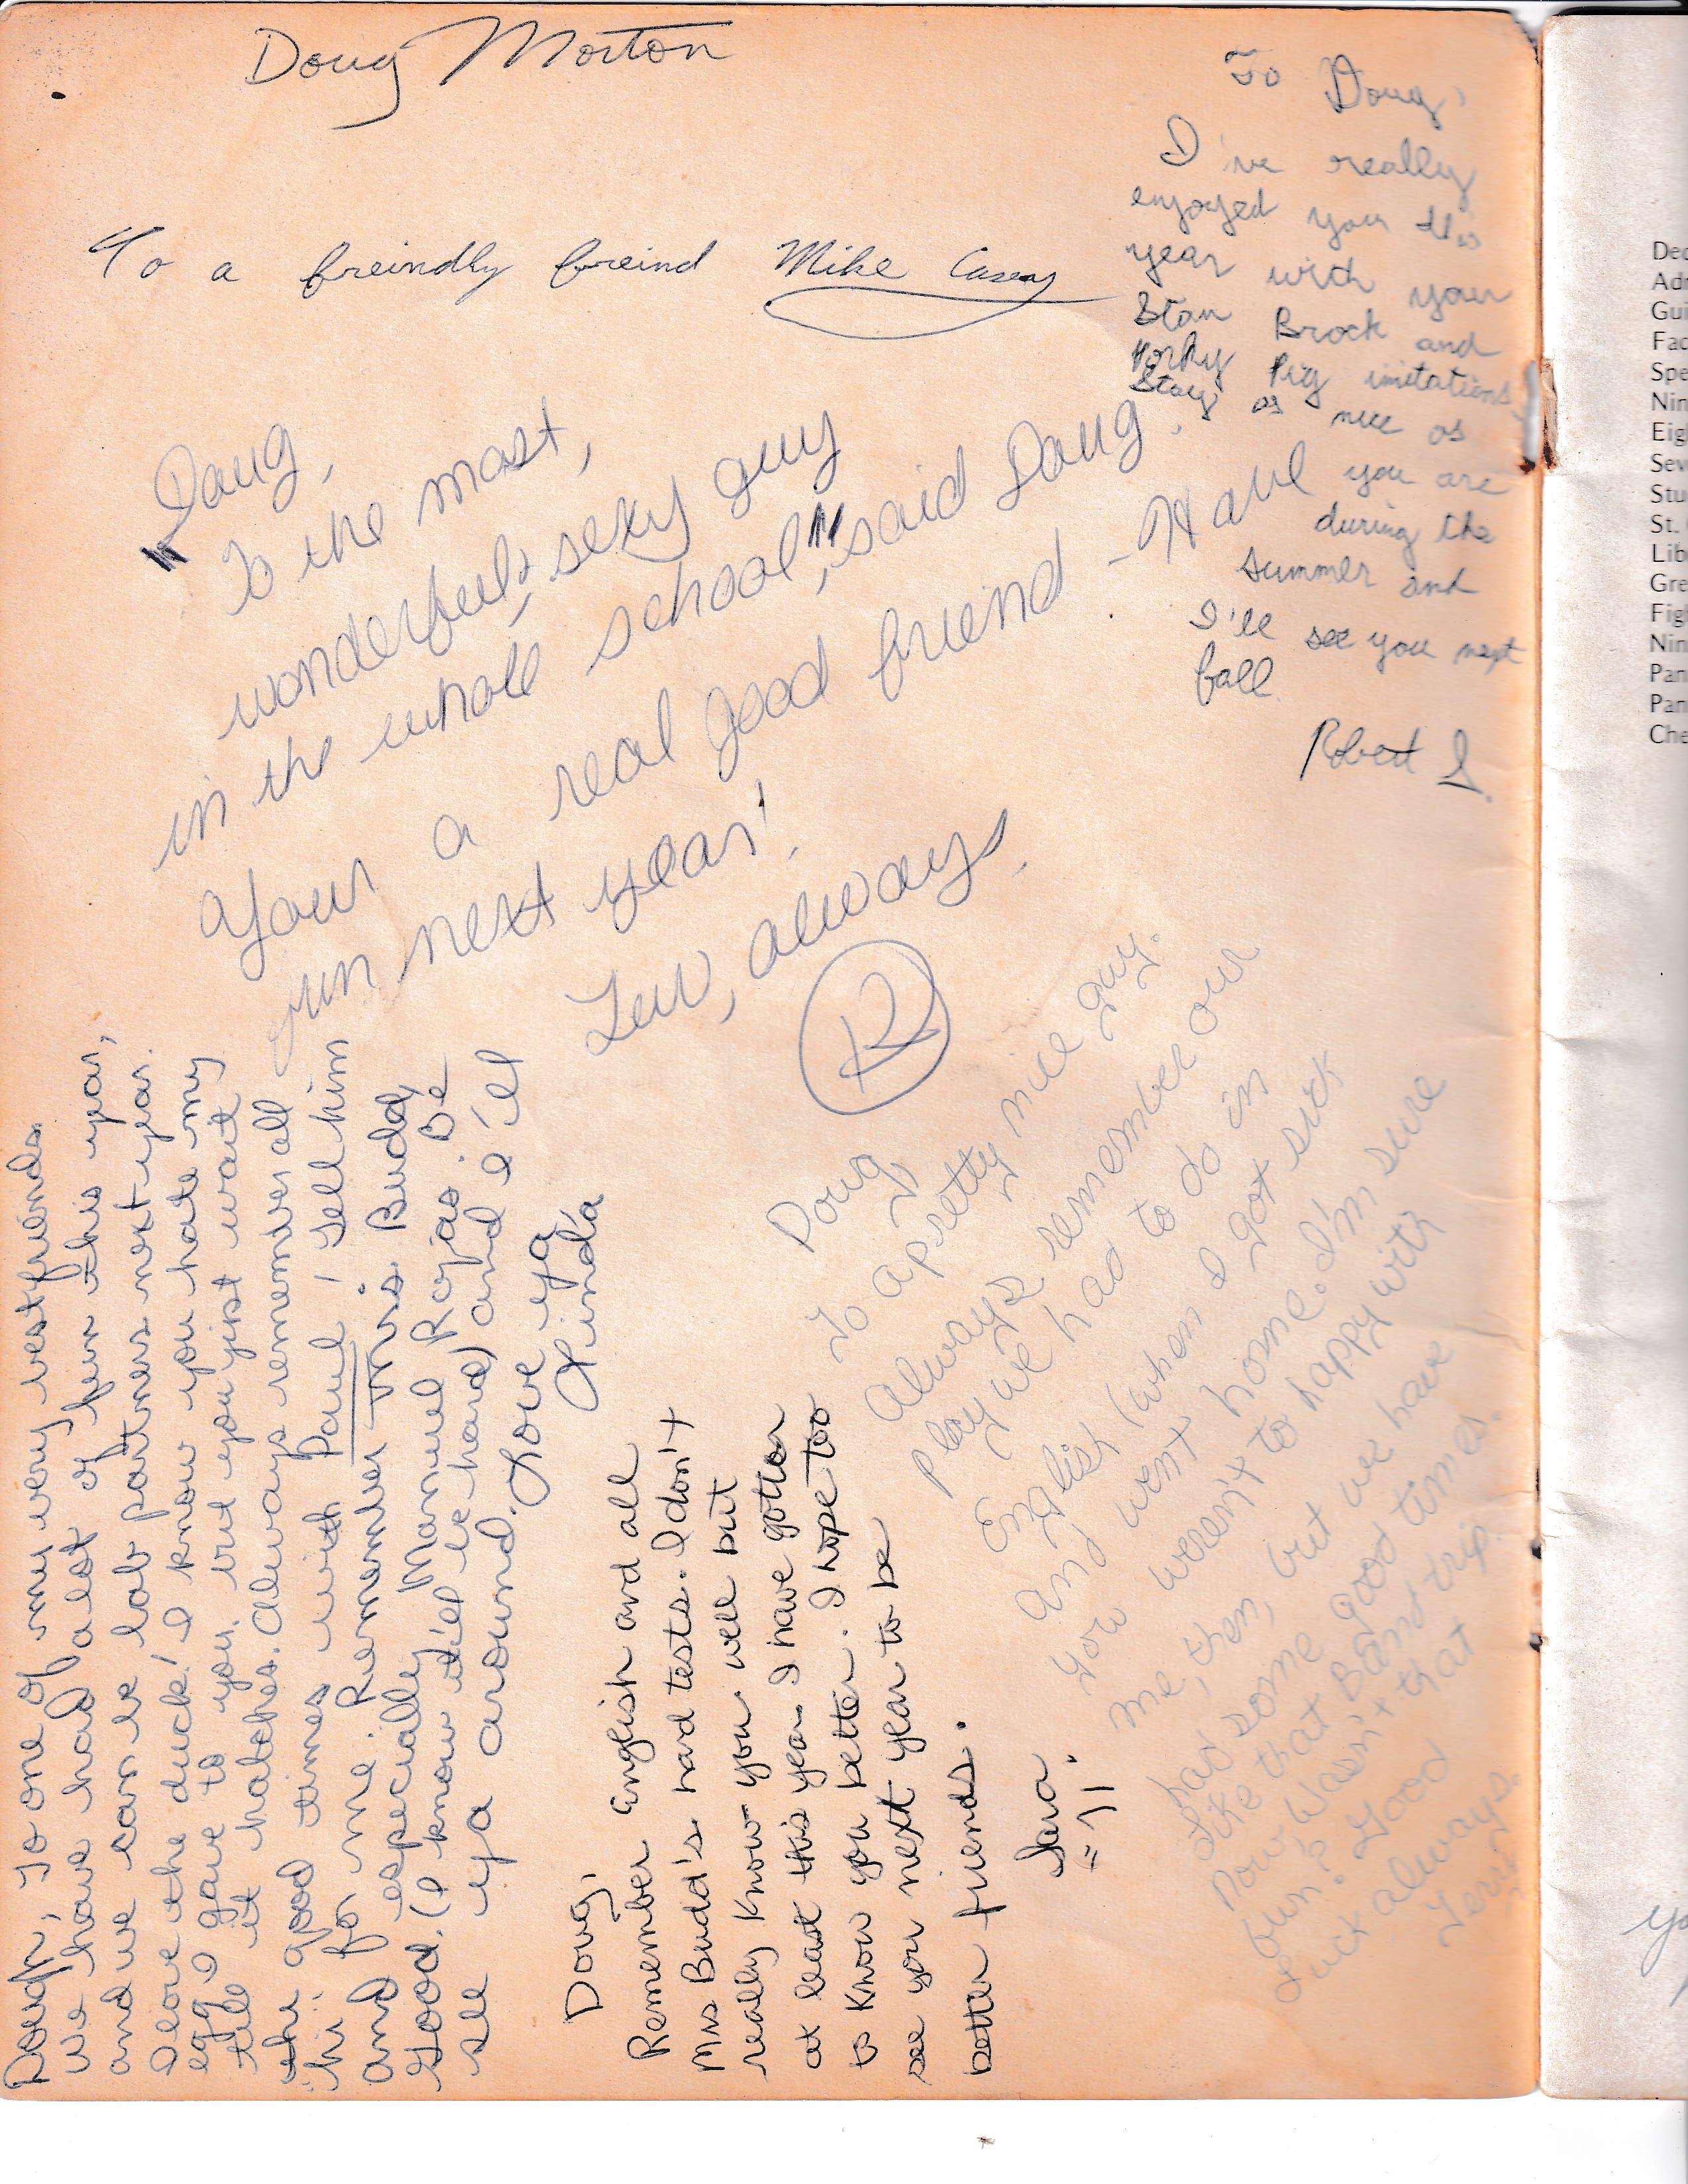 Doug Morton
To a freindly freind Mike Casey
To Doug,
I've really
enjoyed you this
year with your
Stan Brock and
Porky Pig imitations
Stay as nice as
you are
during the
summer and
I'll see you next
fall
Robert J.
"Doug,
To the most,
wonderful, sexy guy
in the whole school", said Doug.
Your a real good friend - Have
fun next year!
Luv, always,
R
Dough, To one of my very best friends.
We have had alot of fun this year,
and we can be lab partners next year.
I love the duck! I know you hate my
egg I gave to you, but you just wait
till it hatches. Always remember all
the good times with Paul! Tell him
"hi" for me. Remember Mrs. Budd,
and especially Manuel Rojas. Be
Good. (I know it'll be hard) and I'll
see ya around.
Love ya
Linda
Doug,
Remember English and all
Mrs Budd's hard tests. I don't
really know you well but
at least this year I have gotten
to know you better. I hope too
see you next year to be
better friends.
Sara
Doug
To a pretty nice guy.
Always remember our
play we had to do in
English (when I got sick
and went home. I'm sure
you weren't to happy with
me, then, but we have
had some good times.
Like that Band trip.
Now wasn't that
fun? Good
Luck always.
Terri
Nin
Eig
Sev
Stu
St.
Lib
Gre
Fig
Nin
Pan
Pan
Che